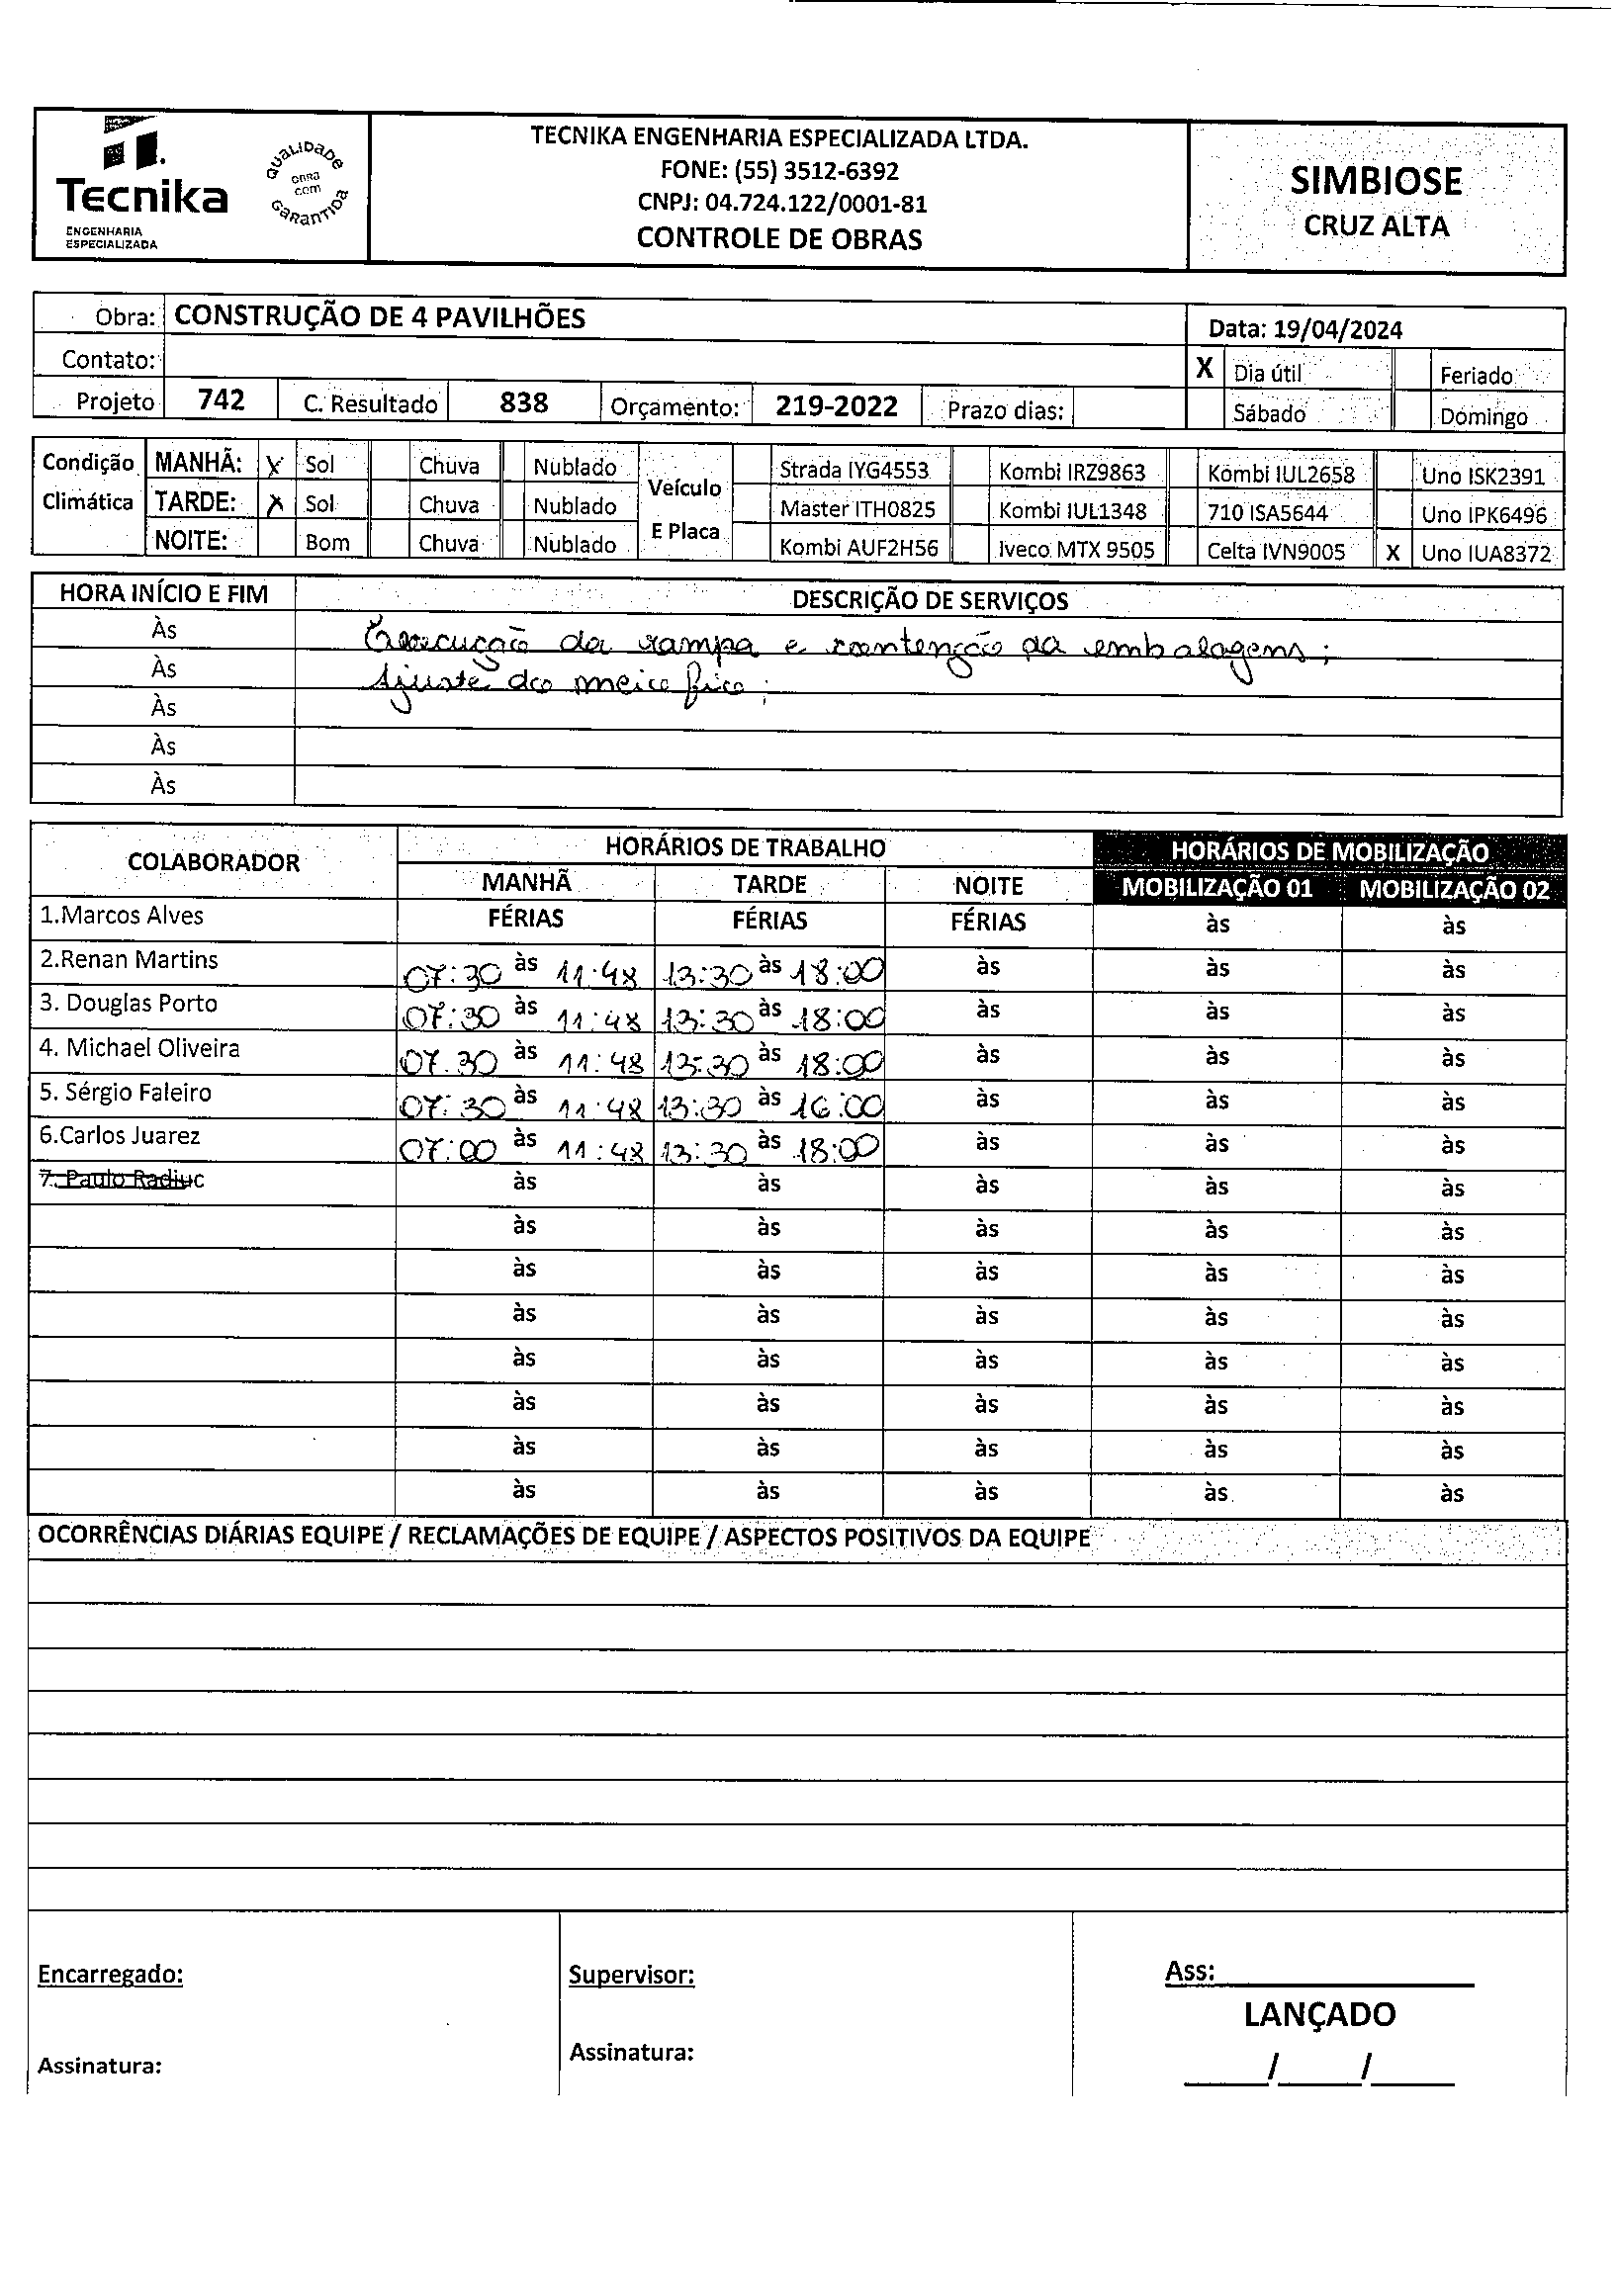 Tecnika
ENGENHARIA
ESPECIALIZADA
QUALIDADE
OBRA
COM
GARANTIDA
TECNIKA ENGENHARIA ESPECIALIZADA LTDA.
FONE: (55) 3512-6392
CNPJ: 04.724.122/0001-81
CONTROLE DE OBRAS
SIMBIOSE
CRUZ ALTA
Obra: CONSTRUÇÃO DE 4 PAVILHÕES Data: 19/04/2024
Contato: X Dia útil Feriado
Projeto 742 C. Resultado 838 Orçamento: 219-2022 Prazo dias: Sábado Domingo
Condição Climática Veículo E Placa
MANHÃ: X Sol Chuva Nublado Strada IYG4553 Kombi IRZ9863 Kombi IUL2658 Uno ISK2391
TARDE: X Sol Chuva Nublado Master ITH0825 Kombi IUL1348 710 ISA5644 Uno IPK6496
NOITE: Bom Chuva Nublado Kombi AUF2H56 Iveco MTX 9505 Celta IVN9005 X Uno IUA8372
HORA INÍCIO E FIM DESCRIÇÃO DE SERVIÇOS
Às Execução da rampa e contenção da embalagens;
Às Ajuste do meio fio;
Às
Às
Às
COLABORADOR HORÁRIOS DE TRABALHO HORÁRIOS DE MOBILIZAÇÃO
MANHÃ TARDE NOITE MOBILIZAÇÃO 01 MOBILIZAÇÃO 02
1.Marcos Alves FÉRIAS FÉRIAS FÉRIAS às às
2.Renan Martins 07:30 às 11:48 13:30 às 18:00 às às às
3. Douglas Porto 07:30 às 11:48 13:30 às 18:00 às às às
4. Michael Oliveira 07.30 às 11:48 13:30 às 18:00 às às às
5. Sérgio Faleiro 07:30 às 11:48 13:30 às 16:00 às às às
6.Carlos Juarez 07:00 às 11:48 13:30 às 18:00 às às às
7. Paulo Radiuc às às às às às
às às às às às
às às às às às
às às às às às
às às às às às
às às às às às
às às às às às
às às às às às
OCORRÊNCIAS DIÁRIAS EQUIPE / RECLAMAÇÕES DE EQUIPE / ASPECTOS POSITIVOS DA EQUIPE
Encarregado: Supervisor: Ass:
LANÇADO
Assinatura: Assinatura: / /